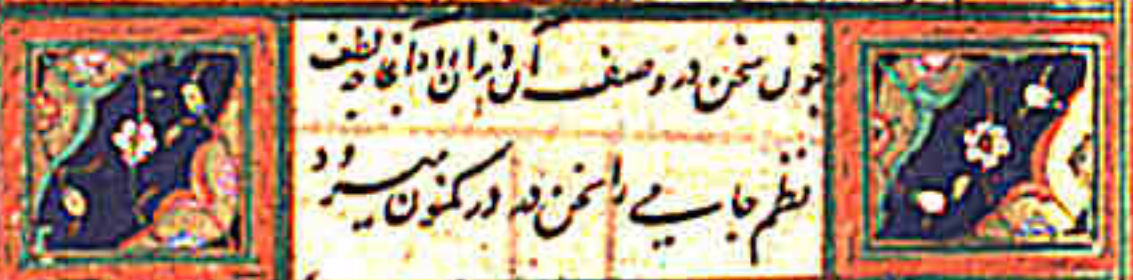 چون سخن در وصف آن دندان رود آنجا لطف
نظم جامی را سخن در در مکنون میرود